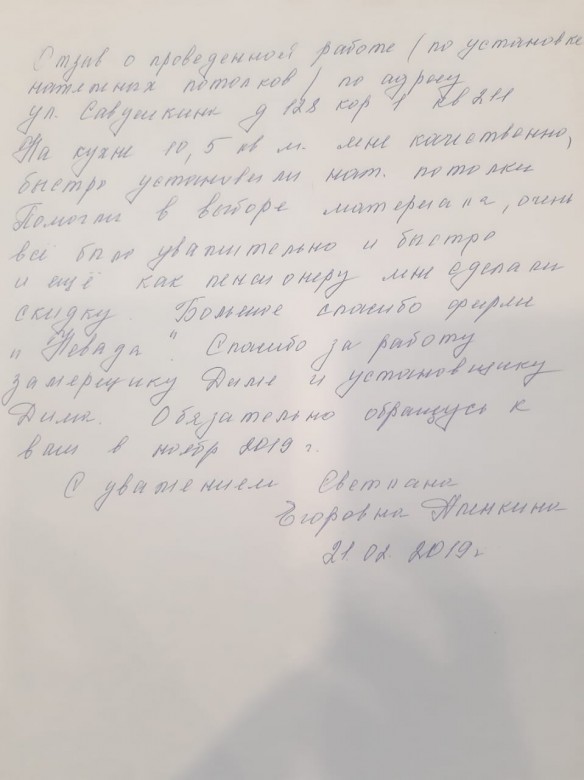 Отзыв о проведенной работе (по установке
натяжных потолков) по адресу
ул. Савушкина д 128 кор 1 кв 211
На кухне 10,5 кв м. мне качественно,
быстро установили нат. потолки
Помогли в выборе материала, очень
всё было уважительно и быстро
и ещё как пенсионеру мне сделали
скидку. Большое спасибо фирме
"Невада". Спасибо за работу
замерщику Диме и установщику
Дима. Обязательно обращусь к
вам в ноябр 2019 г.
С уважением Светлана
Егоровна Апенкина
21.02.2019г